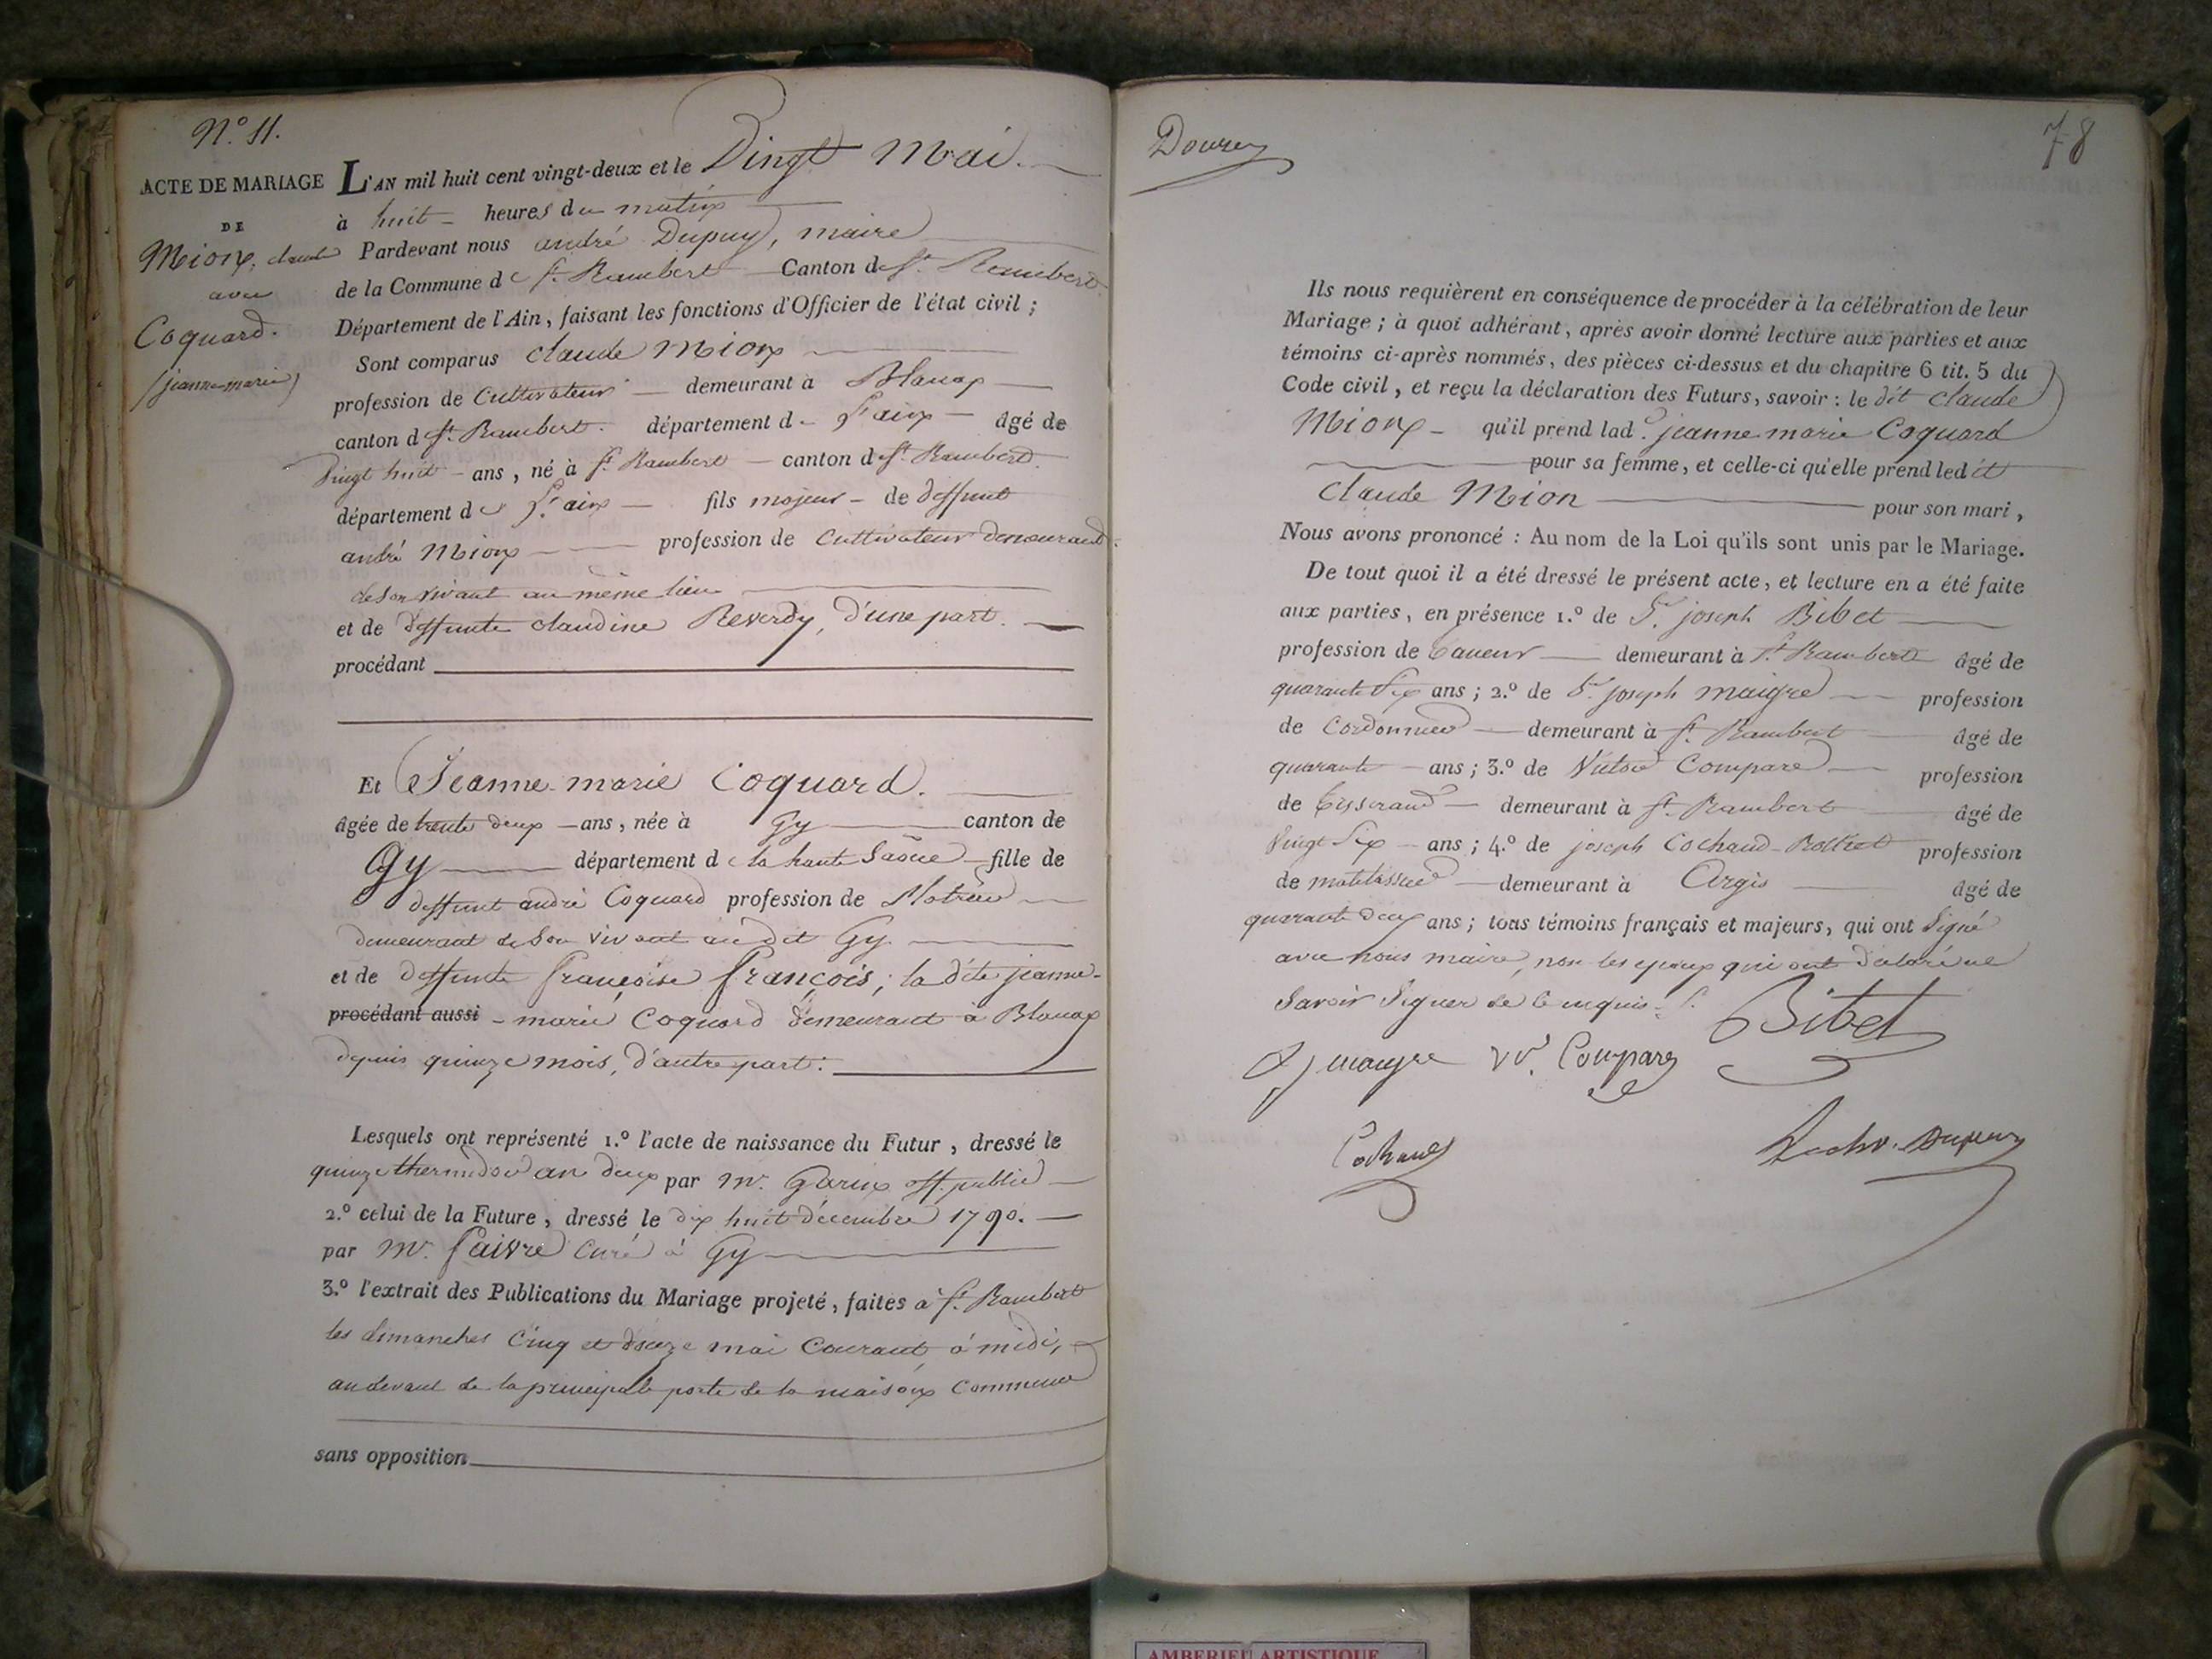 N.º 11.
ACTE DE MARIAGE
DE
Mion, claude
avec
Coquard.
(jeanne-marie)
L'AN mil huit cent vingt-deux et le Vingt Mai.
à huit heures du matin
Pardevant nous andré Dupuy, maire
de la Commune de St. Rambert Canton de St. Rambert
Département de l'Ain, faisant les fonctions d'Officier de l'état civil ;
Sont comparus claude Mion
profession de Cultivateur demeurant à Blanaz
canton de St. Rambert. département de L'ain âgé de
vingt huit ans, né à St. Rambert canton de St. Rambert.
département de L'ain fils majeur de deffunt
andré Mion profession de Cultivateur demeurant
de son vivant au même lieu
et de deffunte claudine Reverdy, d'une part.
procédant
Et Jeanne-marie Coquard.
âgée de trente deux ans, née à Gy canton de
Gy département de la haute Saône fille de
deffunt andré Coquard profession de
demeurant de son vivant au dit Gy
et de deffunte françoise françois ; la dite jeanne-
procédant aussi - marie Coquard demeurant à Blanaz
depuis quinze mois, d'autre part.
Lesquels ont représenté 1.º l'acte de naissance du Futur, dressé le
quinze thermidor an deux par Mr. off. public
2.º celui de la Future, dressé le dix huit décembre 1790.
par Mr. faivre curé à Gy
3.º l'extrait des Publications du Mariage projeté, faites à St. Rambert
les dimanches cinq et douze mai courant, à midi,
au devant de la principale porte de la maison Commune
sans opposition
Dourey
78
Ils nous requièrent en conséquence de procéder à la célébration de leur
Mariage ; à quoi adhérant, après avoir donné lecture aux parties et aux
témoins ci-après nommés, des pièces ci-dessus et du chapitre 6 tit. 5 du
Code civil, et reçu la déclaration des Futurs, savoir : le dit claude
Mion qu'il prend lad.e jeanne marie Coquard
pour sa femme, et celle-ci qu'elle prend ledit
claude Mion pour son mari,
Nous avons prononcé : Au nom de la Loi qu'ils sont unis par le Mariage.
De tout quoi il a été dressé le présent acte, et lecture en a été faite
aux parties, en présence 1.º de Sr. joseph Bibet
profession de taneur demeurant à St. Rambert âgé de
quarante six ans ; 2.º de Sr. joseph maigre profession
de Cordonnier demeurant à St. Rambert âgé de
quarante ans ; 3.º de Victor Compare profession
de tisserand demeurant à St. Rambert âgé de
vingt six ans ; 4.º de joseph Cochand profession
de matelassier demeurant à Argis âgé de
quarante deux ans ; tous témoins français et majeurs, qui ont signé
avec nous maire, non les epoux qui ont déclaré ne
savoir signer de ce enquis.
Bibet
J maigre Vr. Compare
Cochand
Dupuy
AMBERIEU ARTISTIQUE